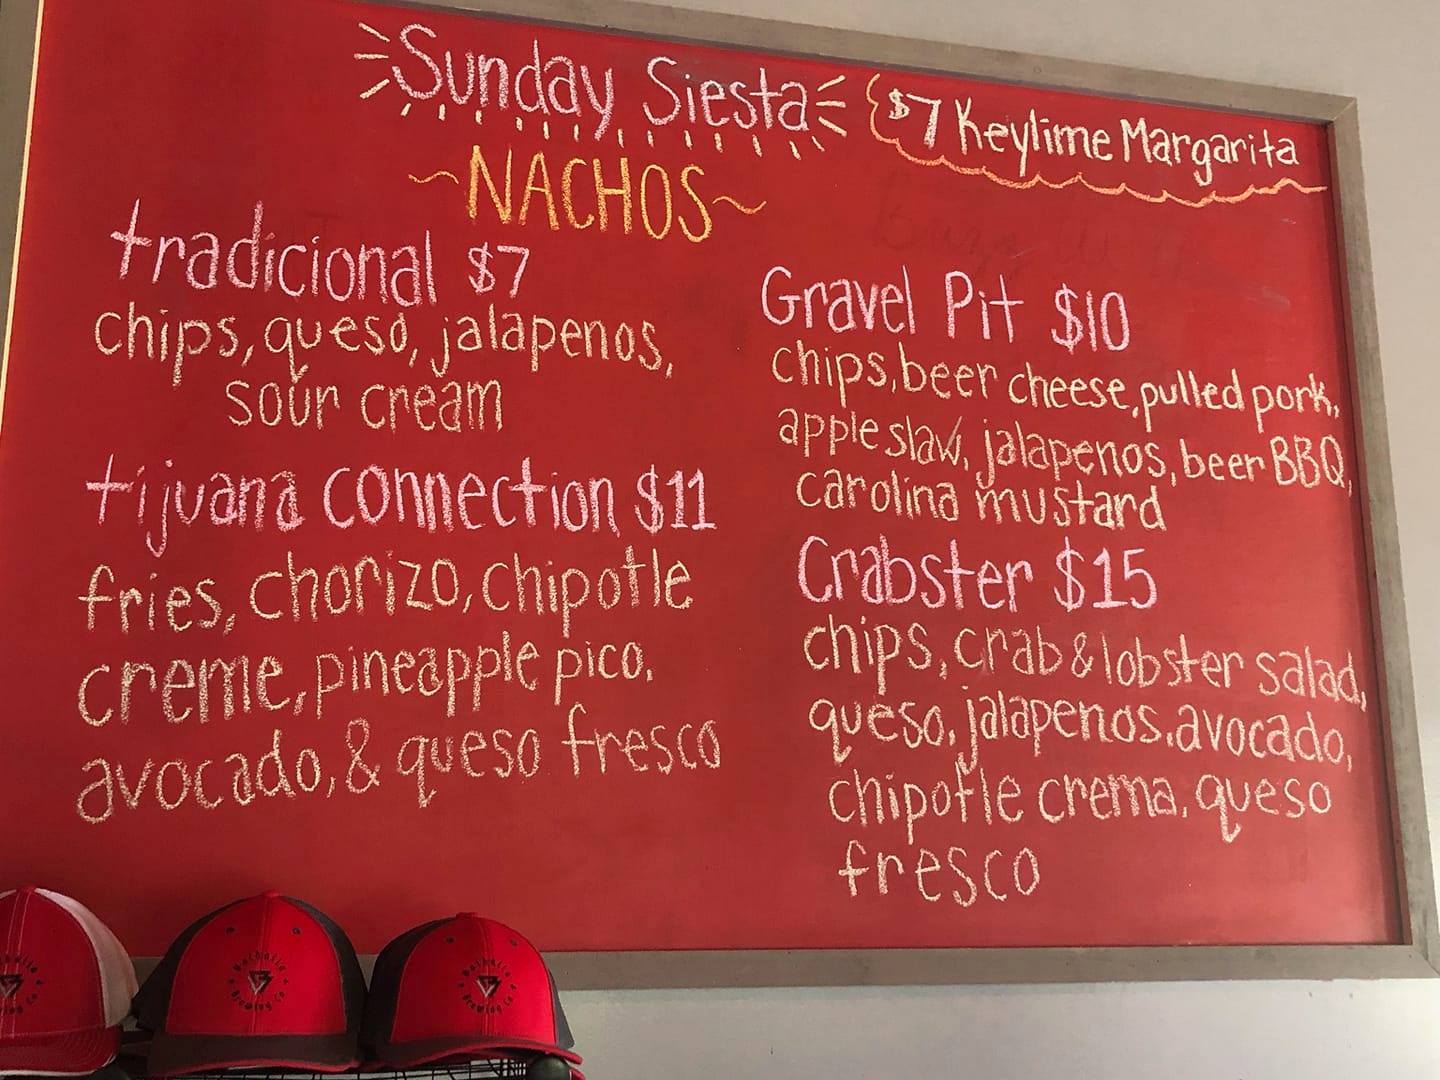 Sunday Siesta
$7 Keylime Margarita
~NACHOS~
tradicional $7
chips, queso, jalapenos,
sour cream
tijuana connection $11
fries, chorizo, chipotle
creme, pineapple pico,
avocado, & queso fresco
Gravel Pit $10
chips, beer cheese, pulled pork,
apple slaw, jalapenos, beer BBQ,
carolina mustard
Crabster $15
chips, crab & lobster salad,
queso, jalapenos, avocado,
chipotle crema, queso
fresco
Brewing Co
Brewing Co